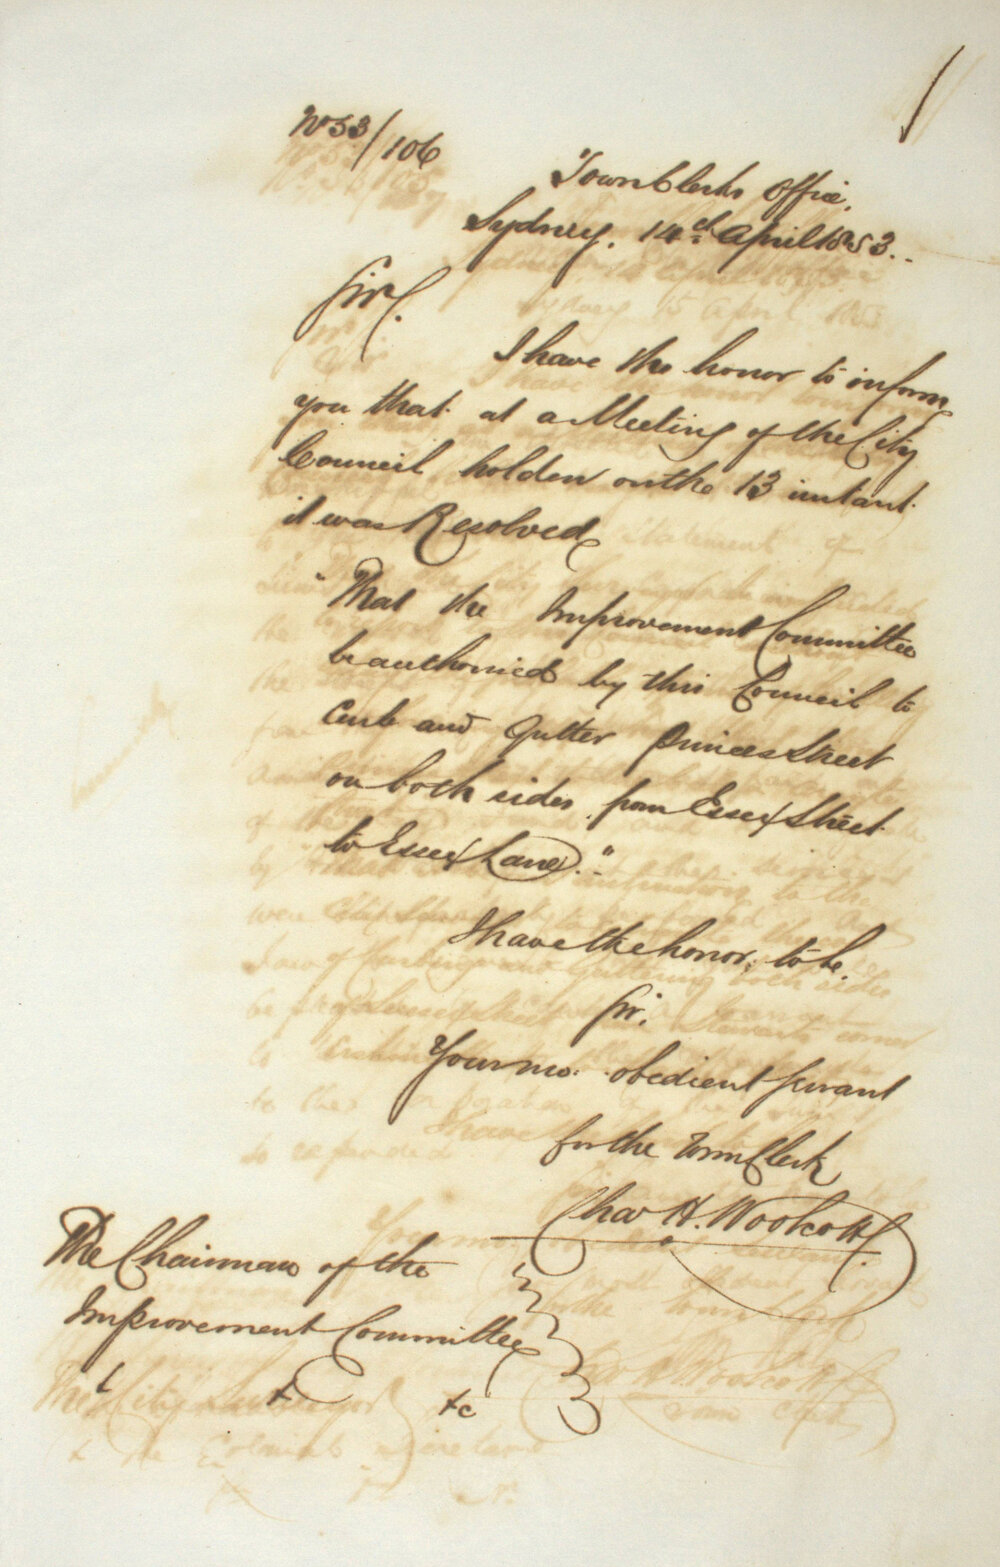 No 53/106
Town Clerks Office,
Sydney. 14th April 1853.
Sir,
I have the honor to inform
you that at a Meeting of the City
Council holden on the 13 instant
it was Resolved
"That the Improvement Committee
be authorised by this Council to
Curb and Gutter Princes Street
on both sides from Essex Street
to Essex Lane."
I have the honor, to be,
Sir,
Your mo. obedient Servant
for the Town Clerk
Chas H. Woolcott
The Chairman of the
Improvement Committee
& & &c